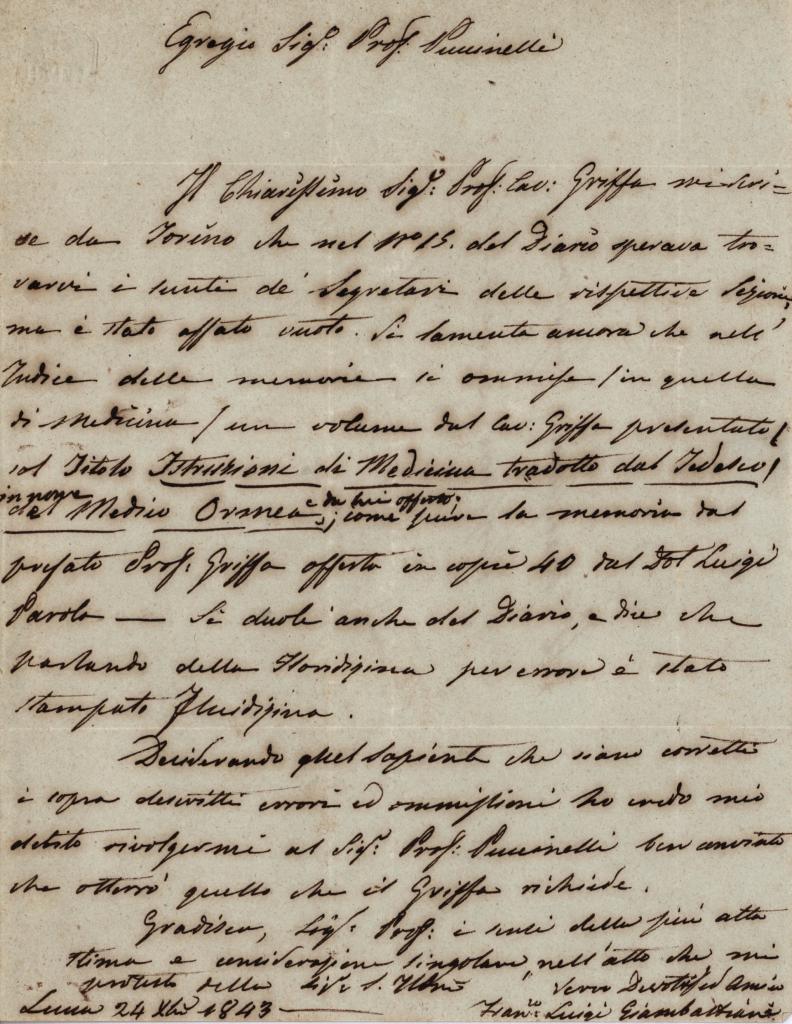 Egregio Sig.r Prof. Puccinelli
Il Chiarissimo Sig.r Prof: Cav: Griffa mi scri=
se da Torino che nel No 15. del Diario sperava tro=
varvi i sunti de' Segretari delle rispettive Sezioni,
ma è stato affato vuoto. Si lamenta ancora che nell'
Indice delle memorie si ommise /in quella
di Medicina/ un volume dal Cav: Griffa presentato/
col Titolo Istruzioni di Medicina tradotto dal Tedesco/
in nome e da lui offerto;
del Medico Ormea; come pure la memoria dal
prefato Prof. Griffa offerta in copie 40 dal Dot Luigi
Parola — Si duole anche del Diario, e dice che
parlando della Floridizina per errore è stato
stampato Fluidizina.
Desiderando quel Sapiente che siano corretti
i sopra descritti errori ed ommissioni ho credo mio
debito rivolgermi al Sig.r Prof. Puccinelli ben convinto
che otterrò quello che il Griffa richiede.
Gradisca, Sig.r Prof: i sensi della più alta
stima e considerazione singolare, nell'atto che mi
protesto della Sig.a S. Ill.ma Vero Devotis ed Amico
Lucca 24 Xbre 1843 — Fran.co Luigi Giambastiani